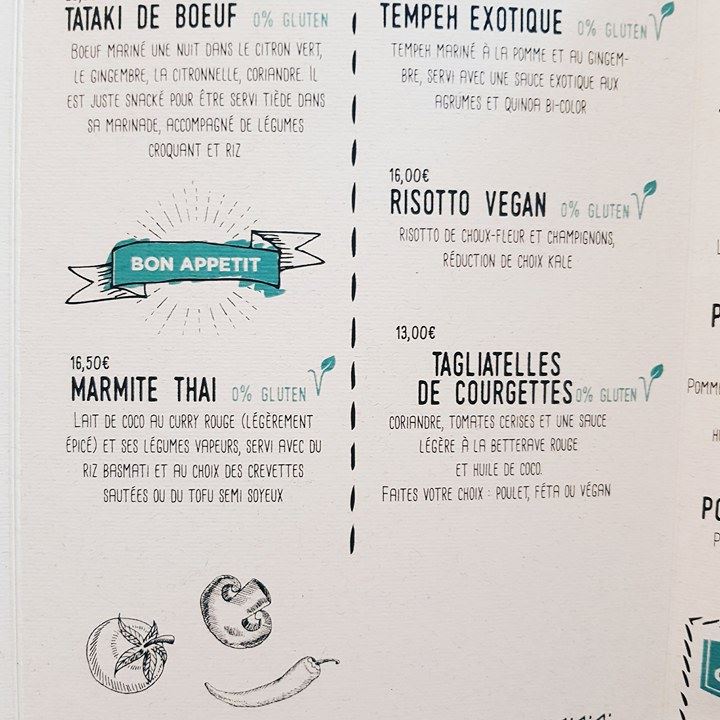 TATAKI DE BOEUF 0% GLUTEN
BOEUF MARINÉ UNE NUIT DANS LE CITRON VERT,
LE GINGEMBRE, LA CITRONNELLE, CORIANDRE. IL
EST JUSTE SNACKÉ POUR ÊTRE SERVI TIÈDE DANS
SA MARINADE, ACCOMPAGNÉ DE LÉGUMES
CROQUANT ET RIZ
BON APPETIT
16,50€
MARMITE THAI 0% GLUTEN
LAIT DE COCO AU CURRY ROUGE (LÉGÈREMENT
ÉPICÉ) ET SES LÉGUMES VAPEURS, SERVI AVEC DU
RIZ BASMATI ET AU CHOIX DES CREVETTES
SAUTÉES OU DU TOFU SEMI SOYEUX
TEMPEH EXOTIQUE 0% GLUTEN
TEMPEH MARINÉ À LA POMME ET AU GINGEM-
BRE, SERVI AVEC UNE SAUCE EXOTIQUE AUX
AGRUMES ET QUINOA BI-COLOR
16,00€
RISOTTO VEGAN 0% GLUTEN
RISOTTO DE CHOUX-FLEUR ET CHAMPIGNONS,
RÉDUCTION DE CHOIX KALE
13,00€
TAGLIATELLES
DE COURGETTES 0% GLUTEN
CORIANDRE, TOMATES CERISES ET UNE SAUCE
LÉGÈRE À LA BETTERAVE ROUGE
ET HUILE DE COCO.
FAITES VOTRE CHOIX : POULET, FÉTA OU VÉGAN